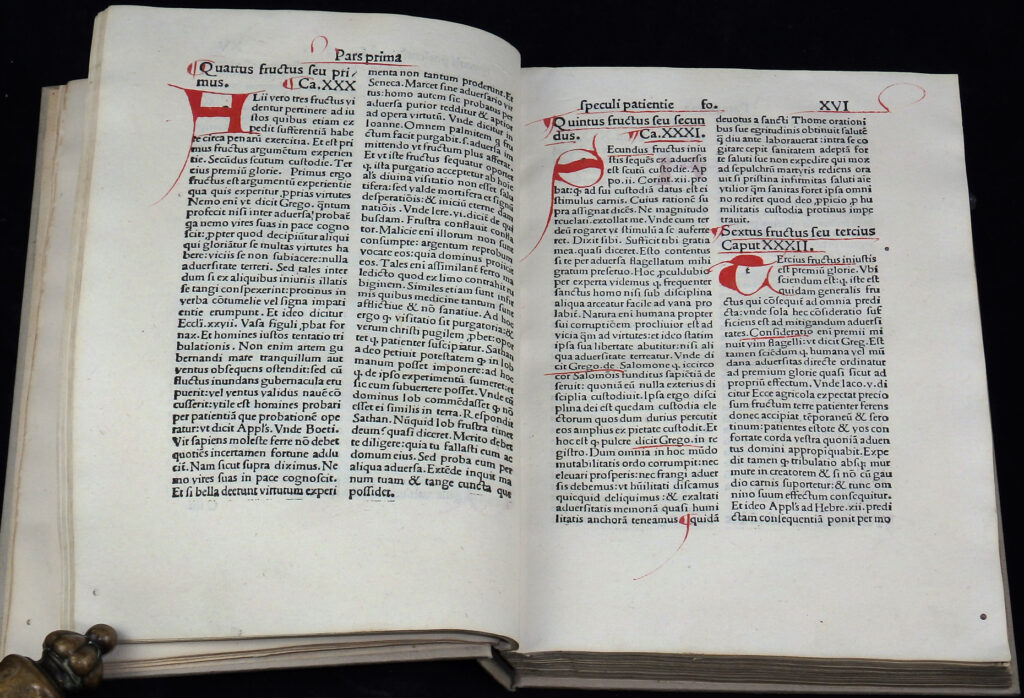 Pars prima
Quartus fructus seu pri
mus. Ca.XXX
Alii vero tres fructus vi
dentur pertinere ad iu
stos quibus etiam ex
pedit sufferentiā habe
re circa penarū exercitia. Et est pri
mus fructus argumētum experien
tie. Secūdus scutum custodie. Ter
tius premiū glorie. Primus ergo
fructus est argumētū experientie
qua quis experitur ,pprias virtutes
Nemo eni vt dicit Grego. q̄ntum
profecit nisi inter aduersa: probat̄
qa nemo vires suas in pace cogno
scit:,ppter quod decipiūtur aliqui
qui gloriātur se multas virtutes ha
bere: viciis se non subiacere: nulla
aduersitate terreri. Sed tales inter
dum si ex aliquibus iniuriis illatis
se tangi conspexerint: protinus in
verba cōtumelie vel signa impati
entie erumpunt. Et ideo dicitur
Eccli.xxvii. Vasa figuli ,pbat for
nax. Et homines iustos tentatio tri
bulationis. Non enim artem gu
bernandi mare tranquillum aut
ventus obsequens ostendit: sed cū
fluctus inundans gubernacula eru
puerit: vel ventus validus nauē cō
cusserit: vtile est homines probari
per patientiā que probationē ope
ratur: vt dicit Appl's. Vnde Boeti.
Vir sapiens moleste ferre nō debet
quotiēs incertamen fortune addu
cit. Nam sicut supra diximus. Ne
mo vires suas in pace cognoscit.
Et si bella deerunt virtutum experi
menta non tantum proderunt. Et
Seneca. Marcet sine aduersario vir
tus: homo autem sic probatus per
aduersa purior redditur & aptior
ad opera virtutū. Vnde dicitur in
Ioanne. Omnem palmitem q fru
ctum facit purgabit. s. aduersa im
mittendo vt fructum plus afferat.
Et vt iste fructus sequatur oportet
q, ista purgatio acceptetur ab hoīe
als diuina visitatio non esset salu
tifera: sed valde mortifera et signū
desperationis: & iniciū eterne dam
natiōis. Vnde Iere.vi. dicit de qui
busdam. Frustra conflauit confla
tor. Malicie eni illorum non sunt
consumpte: argentum reprobum
vocate eos: quia dominus proiecit
eos. Tales eni assimilant ferro ma
ledicto quod ex limo contrahit ru
biginem. Similes etiam sunt infir
mis quibus medicine tantum sunt
afflictiue & nō sanatiue. Ad hoc
ergo q, visitatio sit purgatoria: &
verum christi pugilem ,pbet: opor
tet q, patienter suscipiatur. Sathan
a deo petiuit potestatem q, in Iob
manum posset imponere: ad hoc
q, de ipso experimentū sumeret: et
sic cum subuertere posset. Vnde cū
dominus Iob commēdasset q, nō
esset ei similis in terra. Respondit
Sathan. Nūquid Iob frustra timet
deum? quasi diceret. Merito debet
te diligere: quia tu fallasti cum ac
domum eius. Sed proba eum per
aliqua aduersa. Extēde inquit ma
num tuam & tange cuncta que
possidet.
speculi patientie fo. XVI
Quintus fructus seu secun
dus. Ca.XXXI.
Secundus fructus iniu
stis sequēs ex aduersis
est scutū custodie. Ap
po.ii. Corint.xii. pro
bat: q, ad sui custodiā datus est ei
stimulus carnis. Cuius rationē su
pra assignat dicēs. Ne magnitudo
reuelari. extollat me. Vnde cum ter
deum rogaret vt stimulus a se auferret
roret. Dixit sibi. Sufficit tibi gratia
mea. quasi diceret. Esto contentus
si te per aduersa flagellatum mihi
gratum preseruo. Hoc ,pculdubio
per experta videmus q, frequenter
sanctus homo nisi sub disciplina
aliqua arceatur facile ad vana pro
labit̄. Natura eni humana propter
sui corruptiōem procliuior est ad
vicia q̄m ad virtutes: et ideo statim
ipsa sua libertate abutitur: nisi ali
qua aduersitate terreatur. Vnde di
cit Grego. de Salomone q, iccirco
cor Salomōis funditus sapiētiā de
seruit: quoniā eū nulla exterius di
sciplia custodiuit. Ipsa ergo disci
plina dei est quedam custodia ele
ctorum quos dum durius percutit
eos amplius ex pietate custodit. Et
hoc est q, pulcre dicit Grego. in re
gistro. Dum omnia in hoc mūdo
mutabilitatis ordo corrumpit: nec
eleuari prosperis: nec frangi aduer
sis debemus: vt hūilitati discamus
quicquid deliquimus: & exaltati
aduersitatis memoriā quasi humi
litatis anchorā teneamus quidā
deuotus a sancti Thome orationi
bus sue egritudinis obtinuit salutē
q̄ diu ante laborauerat: intra se co
gitare cepit sanitatem adeptā for
te saluti sue non expedire qui mox
ad sepulchrū martyris rediens ora
uit si pristina infirmitas saluti aīe
vtilior q̄m sanitas foret ipsa omni
no rediret quod deo ,ppicio ,p hu
militatis custodia protinus impe
trauit.
Sextus fructus seu tercius
Caput XXXII.
Tercius fructus iniustis
est premiū glorie. Vbi
sciendum est: q, iste est
quidam generalis fru
ctus qui cōsequit̄ ad omnia predi
cta: vnde sola hec cōsideratio suf
ficiens est ad mitigandum aduersi
tates. Consideratio eni premii mi
nuit vim flagelli: vt dicit Greg. Est
tamen sciēdum q, humana vel mū
dana aduersitas directe ordinatur
ad premium glorie quasi sicut ad
propriū effectum. Vnde Iaco.v. di
citur Ecce agricola expectat precio
sum fructum terre patienter ferens
donec accipiat tēporaneū & sero
tinum: patientes estote & yos con
fortate corda vestra quoniā aduen
tus domini appropiquabit. Expe
dit tamen q, tribulatio absq, mur
mure in creatorem & si nō cū gau
dio carnis suportetur: & tunc om
nino suum effectum consequitur.
Et ideo Appl's ad Hebre.xii. predi
ctam consequentiā ponit per mo